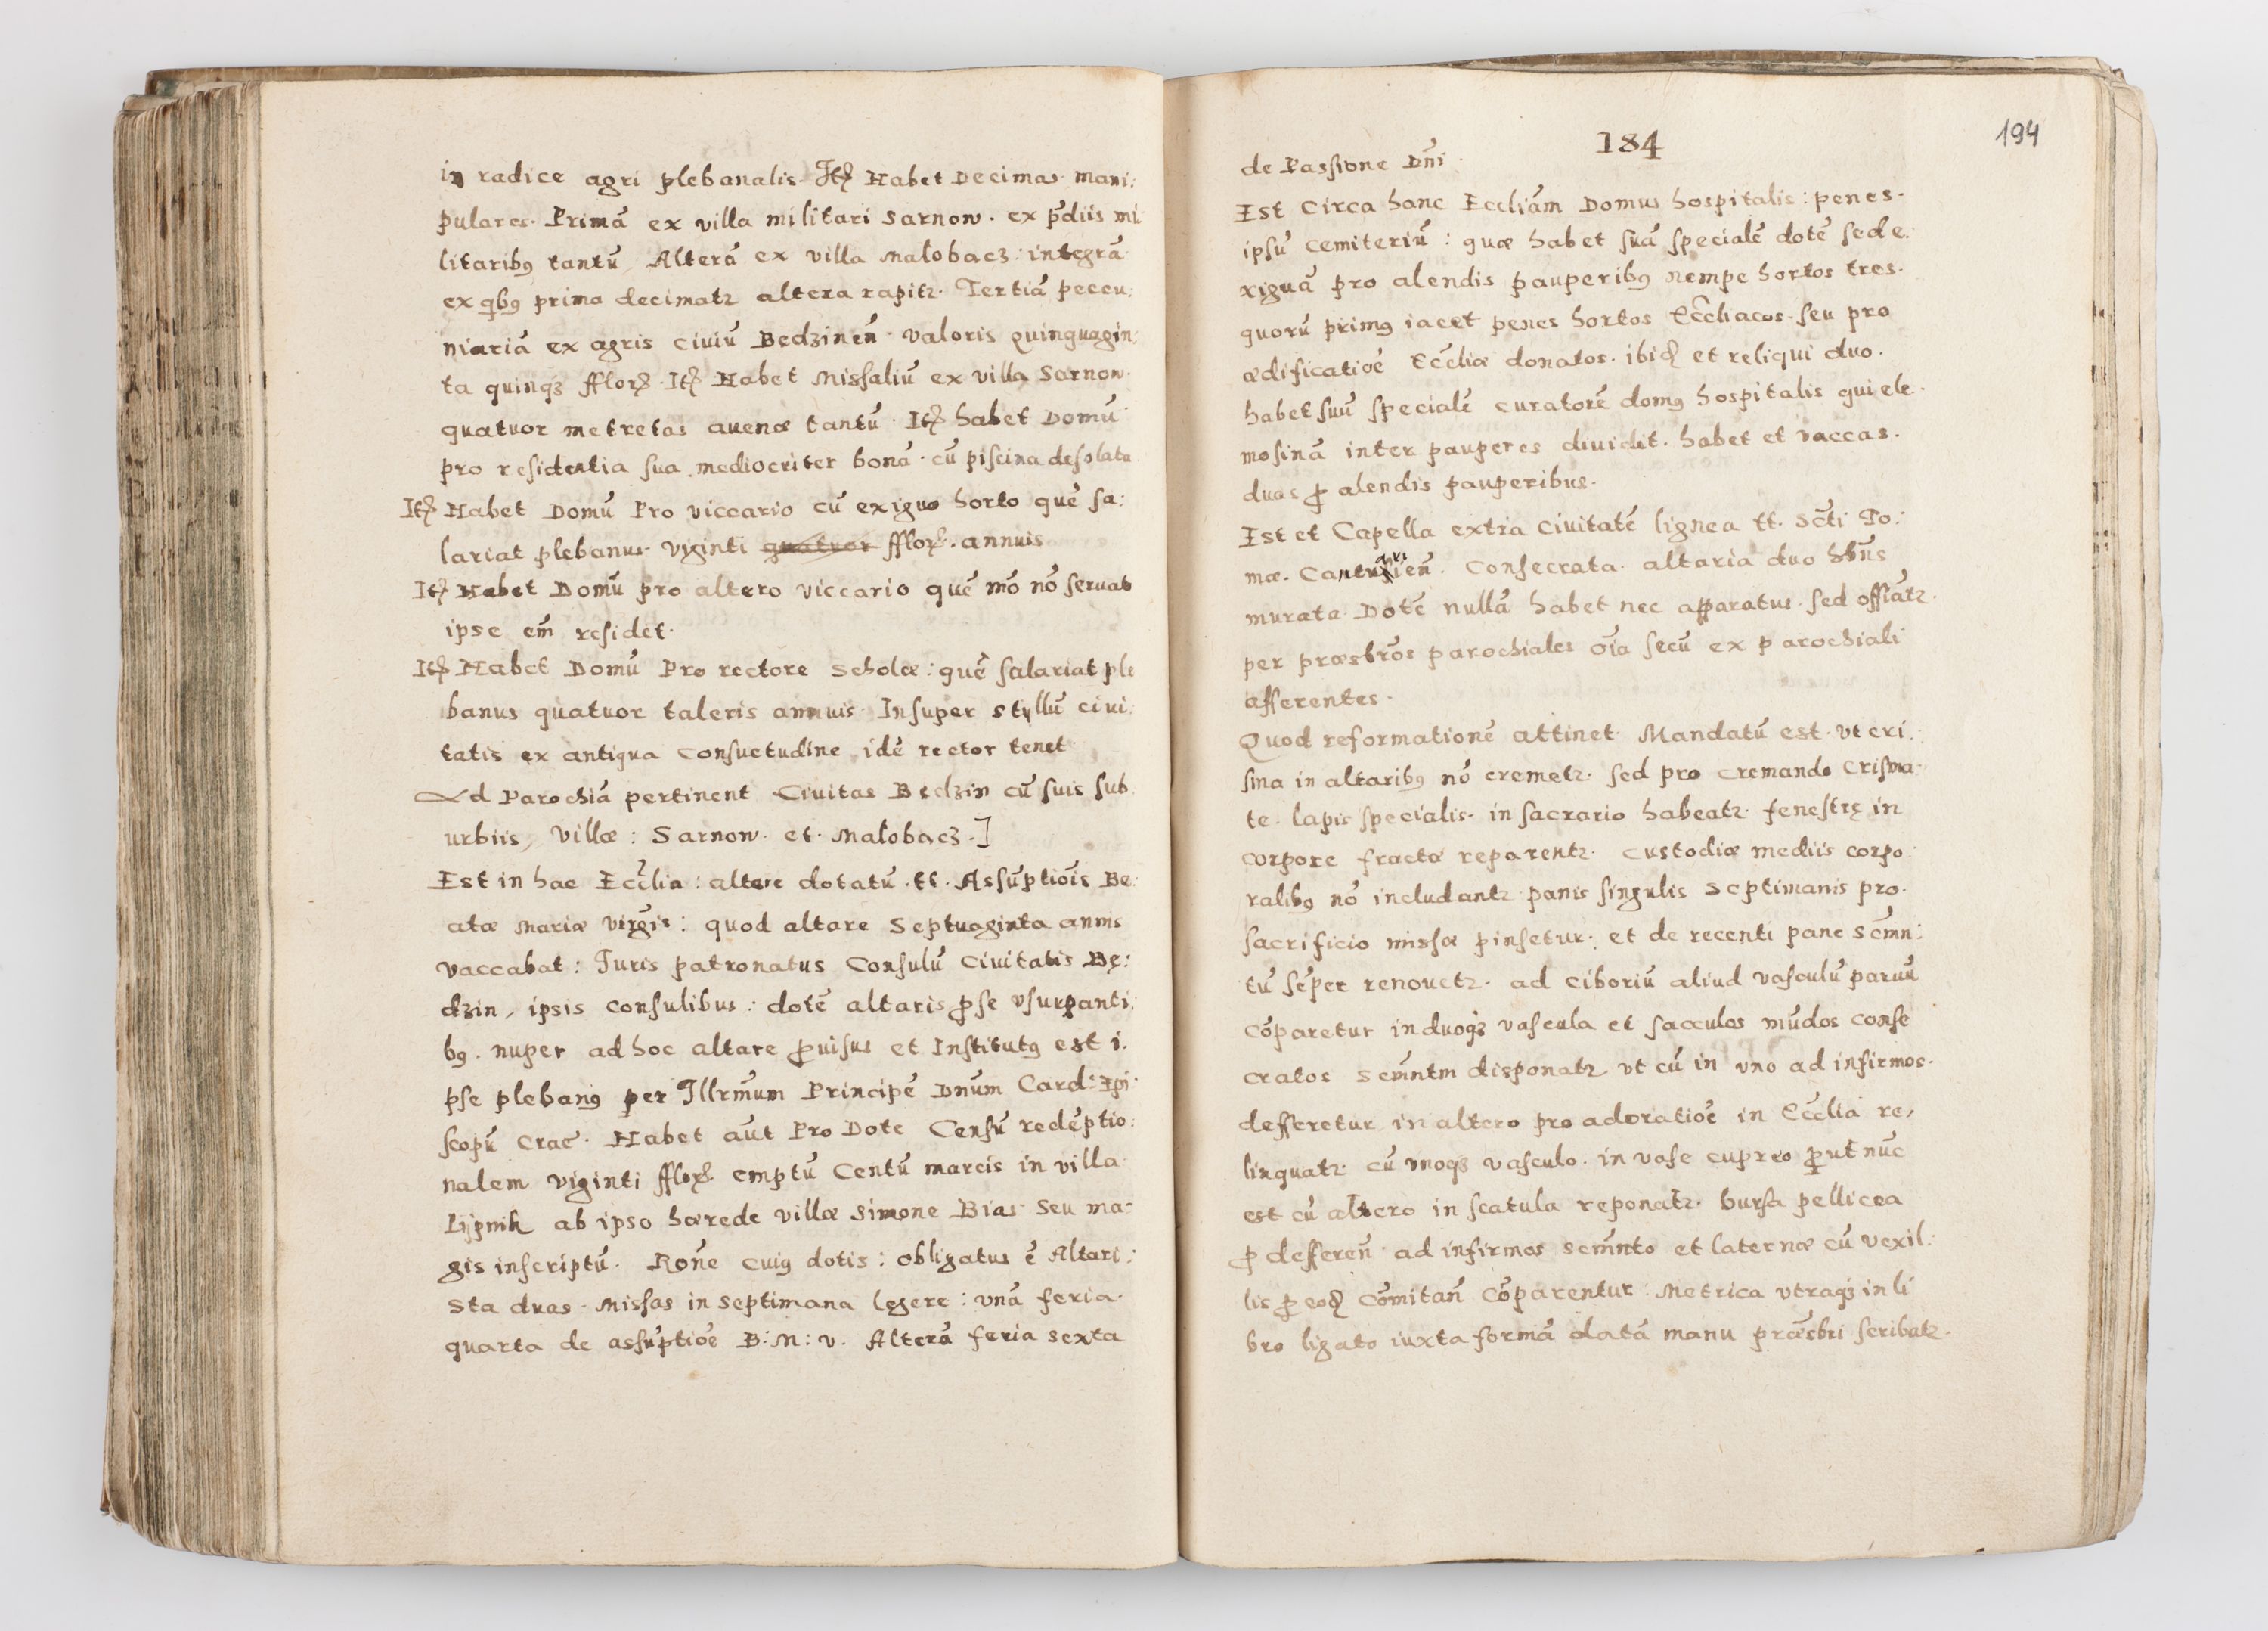 in radice agri plebanalis. Itȩ Habet Decimas mani:
pulares. Primā ex villa militari Sarnow. ex p̄diis mi
litarib9 tantū, Alterā ex villa Malobacz: integrā
ex qb9 prima decimatr altera rapitr. Tertiā peccu:
niariā ex agris ciuiū Bedzinen̄ valoris Quinquagin:
ta quinqȝ fflorꝝ. Itȩ Habet Missaliū ex villa Sarnow.
quatuor metretas auenæ tantū. Itȩ habet Domū
pro residentia sua mediocriter bonā. cū piscina desolata
Itȩ Habet Domū Pro viccario cū exiguo horto quē sa:
lariat plebanus viginti quatuor fflorꝝ. annuis
Itȩ Habet Domū pro altero viccario quē mō nō seruat
ipse em̄ residet.
Itȩ Habet Domū Pro rectore Scholæ: quē salariat ple
banus quatuor taleris annuis. Insuper styllū ciui:
tatis ex antiqua consuetudine idē rector tenet
Ad Parochiā pertinent Ciuitas Bedzin cū suis sub
urbiis, villæ: Sarnow. et Malobacz.]
Est in hac Eccl̄ia: altare dotatū. tt. Assūptiōis Be:
atæ Mariæ virḡis: quod altare Septuaginta annis
vaccabat: Iuris patronatus Consulū Ciuitatis Bę:
dzin, ipsis consulibus: dotē altaris ꝓ se vsurpanti:
b9. nuper ad hoc altare ꝓuisus et Institut9 est i.
pse pleban9 per Illrm̄um Principē Dnūm Card: Epi
scopū Crac̄. Habet aūt Pro Dote Censū redēptio:
nalem viginti fflorꝝ emptū Centū marcis in villa
Lypnik ab ipso hærede villæ Simone Bias seu ma-
gis inscriptū. Rōne cui9 dotis: obligatus ē Altari:
sta duas Missas in septimana legere: vnā feria
quarta de assūptiōe B: M: v. Alterā feria sexta
184
194
de Passione Dn̄i.
Est Circa hanc Eccliām Domus hospitalis: penes.
ipsū cemiteriū: quæ habet suā specialē dotē sed e.
xiguā pro alendis pauperib9 nempe hortos tres.
quorū prim9 iacet penes hortos Eccl̄iacos seu pro
ædificatiōe Eccl̄iæ donatos. ibiȩ et reliqui duo.
habet suū specialē curatorē dom9 hospitalis qui ele.
mosinā inter pauperes diuidit. habet et vaccas.
duas ꝓ alendis pauperibus.
Est et Capella extra Ciuitatē lignea tt. Scti To:
mæ. Cantuarien̄. Consecrata. altaria duo hn̄s
murata Dotē nullā habet nec apparatus. sed offiatr.
per præsbrōs parochiales oīa secū ex parochiali
afferentes.
Quod reformationē attinet Mandatū est. vt cri.
sma in altarib9 nō cremetr. sed pro cremando Crisma.
te. lapis specialis. in sacrario habeatr. fenestrę in
corpore fractæ reparentr. Custodiæ mediis corpo.
ralib9 nō includantr panis singulis septimanis pro.
sacrificio missæ pinsetur. et de recenti pane Scm̄n:
tū sēper renouetr. ad ciboriū aliud vasculū paruū
cōparetur induoqȝ vascula et sacculos mūdos conse
cratos scm̄ntm disponatr vt cū in vno ad infirmos.
defferetur in altero pro adoratiōe in Eccl̄ia re,
linquatr cū vnoqȝ vasculo. in vase cupreo ꝓut nūc
est cū altero in scatula reponatr. bursa pellicea
ꝓ defferen̄ ad infirmos scm̄nto et laternæ cū vexil:
lis ꝓ eoȩ cōmitan̄ cōparentur. Metrica vtraqȝ in li
bro ligato iuxta formā datā manu præsbri scribatr.